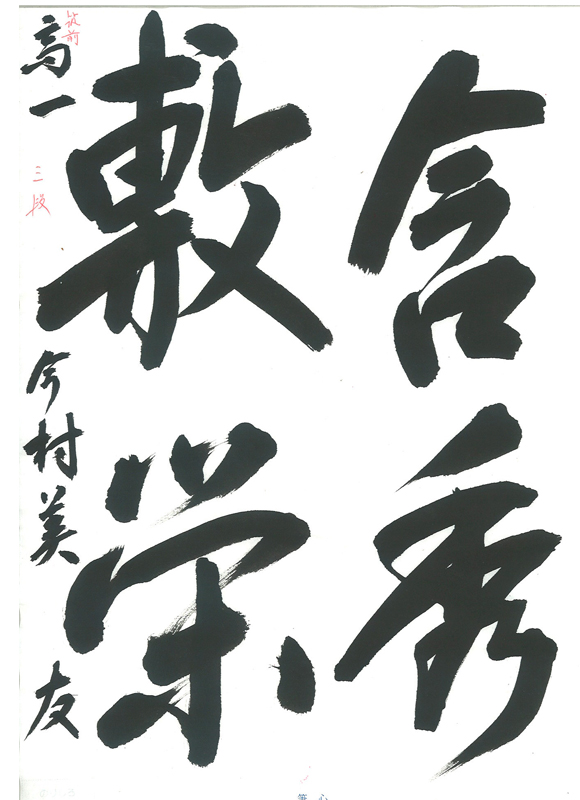 含秀
敷栄
筑前
高一 今村美友
三段